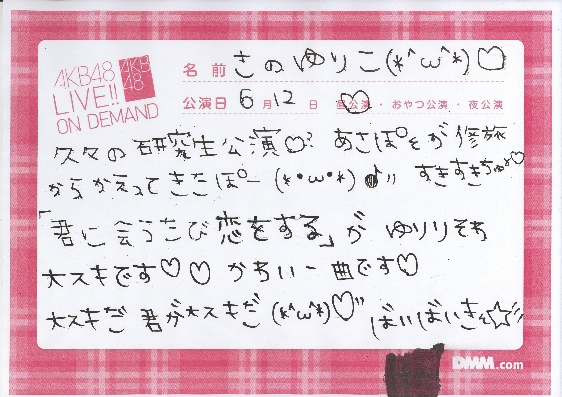 AKB48
LIVE!!
ON DEMAND
AKB
48
名前 さのゆりこ(*^ω^*)♡
公演日 6月12日 昼公演・おやつ公演・夜公演
久々の研究生公演♡? あさぽそが修旅
からかえってきたぽー(*•ω•*)♪!! すきすきちゅ♡
「君に会うたび恋をする」が ゆりりそち
大スキです♡♡ かちいー曲です♡
大スキだ 君が大スキだ (*^ω^*)♡!! ばいばいきん☆彡
DMM.com